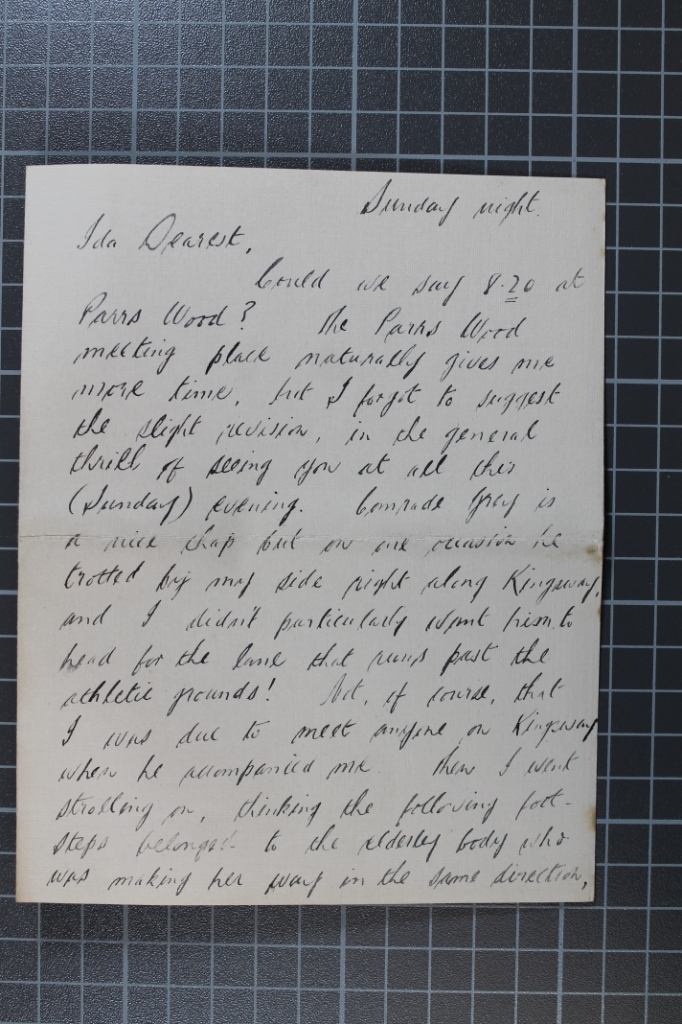 Sunday night.
Ida Dearest,
Could we say 8.20 at
Parrs Wood? The Parrs Wood
meeting place naturally gives me
more time, but I forgot to suggest
the slight revision, in the general
thrill of seeing you at all this
(Sunday) evening. Comrade Gray is
a nice chap but on one occasion he
trotted by my side right along Kingsway,
and I didn't particularly want him to
head for the lane that runs past the
athletic grounds! Not, of course, that
I was due to meet anyone on Kingsway
when he accompanied me. Then I went
strolling on, thinking the following foot-
steps belonged to the elderley body who
was making her way in the same direction,